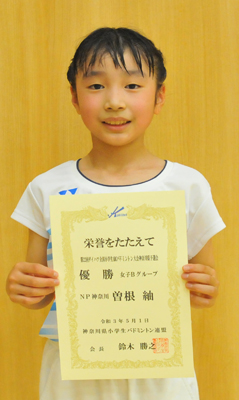 栄誉をたたえて
優勝 女子Bグループ
NP神奈川 曽根 紬
令和3年5月1日
神奈川県小学生バドミントン連盟
会長 鈴木 勝之